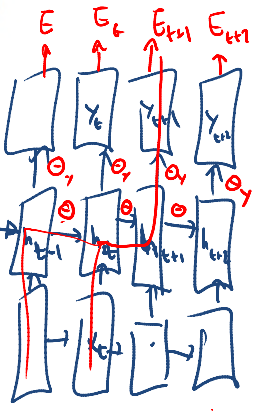 E E_t E_t+1 E_t+2
y_t y_t+1 y_t+2
θ_y θ_y θ_y θ_y
θ θ θ
h_t-1 h_t h_t+1 h_t+2